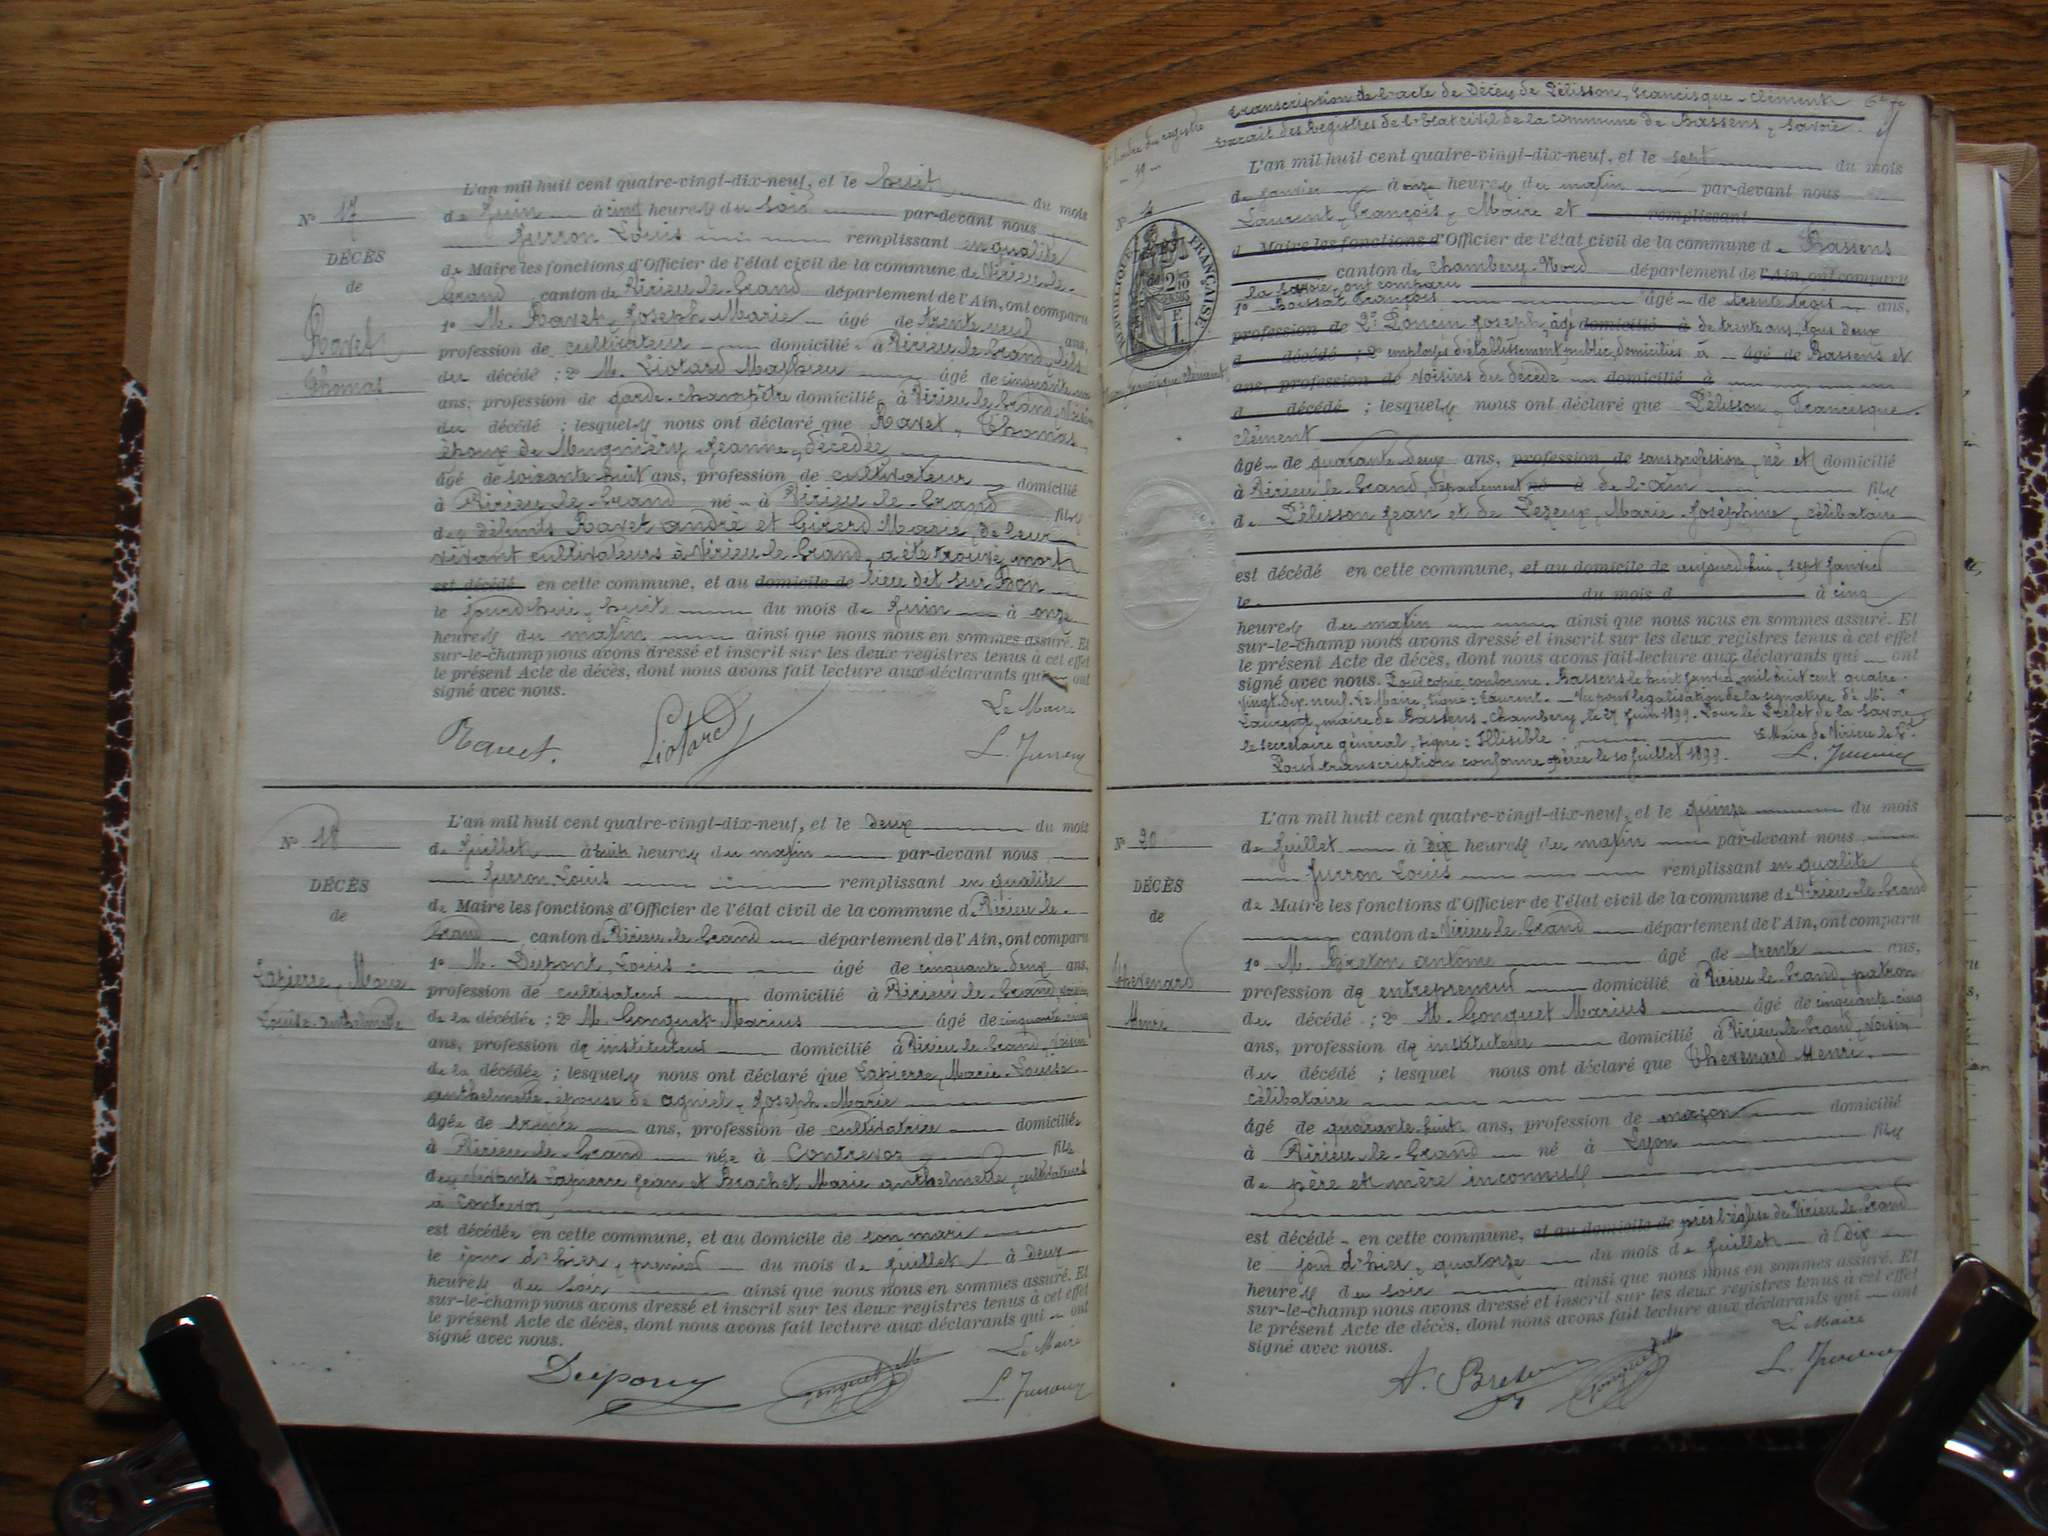 N° 17
DÉCÈS
de
Ravet
Thomas
L'an mil huit cent quatre-vingt-dix-neuf, et le huit du mois
de Juin à cinq heures du soir par-devant nous
Jurron Louis remplissant en qualité
de Maire les fonctions d'Officier de l'état civil de la commune de Virieu-le-
Grand canton de Virieu-le-Grand département de l'Ain, ont comparu
1° M. Ravet, Joseph Marie âgé de trente neuf ans,
profession de cultivateur domicilié à Virieu-le-Grand, fils
du décédé ; 2° M. Liotard Mathieu âgé de cinquante
ans, profession de garde-champêtre domicilié à Virieu-le-Grand, voisin
du décédé ; lesquels nous ont déclaré que Ravet, Thomas
époux de Mugniéry Jeanne, décédée
âgé de soixante huit ans, profession de cultivateur domicilié
à Virieu-le-Grand né à Virieu-le-Grand fils
des défunts Ravet andré et Girerd Marie, de leur
vivant cultivateurs à Virieu-le-Grand, a été trouvé mort
est décédé en cette commune, et au domicile de lieu dit sur Bon
le jourd'hui, huit du mois de Juin à onze
heures du matin ainsi que nous nous en sommes assuré. Et
sur-le-champ nous avons dressé et inscrit sur les deux registres tenus à cet effet
le présent Acte de décès, dont nous avons fait lecture aux déclarants qui ont
signé avec nous.
Le Maire
Ravet. Liotard L. Jurron
N° 18
DÉCÈS
de
Lapierre, Marie
Louise-anthelmette
L'an mil huit cent quatre-vingt-dix-neuf, et le deux du mois
de Juillet à huit heures du matin par-devant nous
Jurron Louis remplissant en qualité
de Maire les fonctions d'Officier de l'état civil de la commune de Virieu-le-
Grand canton de Virieu-le-Grand département de l'Ain, ont comparu
1° M. Dupont, Louis âgé de cinquante deux ans,
profession de cultivateur domicilié à Virieu-le-Grand, voisin
de la décédée ; 2° M. Gonguet Marius âgé de cinquante-cinq
ans, profession de instituteur domicilié à Virieu-le-Grand, voisin
de la décédée ; lesquels nous ont déclaré que Lapierre, Marie-Louise
anthelmette, épouse de agniel, Joseph-Marie
âgée de trente ans, profession de cultivatrice domiciliée
à Virieu-le-Grand née à Contrevoz fille
des vivants Lapierre Jean et Brachet Marie anthelmette, cultivateurs
à Contrevoz,
est décédée en cette commune, et au domicile de son mari
le jour d'hier, premier du mois de Juillet à deux
heures du soir ainsi que nous nous en sommes assuré. Et
sur-le-champ nous avons dressé et inscrit sur les deux registres tenus à cet effet
le présent Acte de décès, dont nous avons fait lecture aux déclarants qui ont
signé avec nous.
Le Maire
Dupont Gonguet M L. Jurron
Transcription de l'acte de Décès de Pélisson, Francisque-Clément
Extrait des Registres de l'Etat civil de la commune de Bassens, Savoie.
N° d'ordre du registre
- 19 -
RÉPUBLIQUE FRANÇAISE
L'an mil huit cent quatre-vingt-dix-neuf, et le sept du mois
de Janvier à onze heures du matin par-devant nous
Laurent, François, Maire et remplissant
d Maire les fonctions d'Officier de l'état civil de la commune de Bassens
canton de Chambéry-Nord département de l'Ain, ont comparu
la Savoie, ont comparu
1° Boissat François âgé de trente trois ans,
profession de 2° Poncin Joseph, âgé domicilié à de trente ans, tous deux
d décédé ; 2° employés d'établissement public, domiciliés à âgé de Bassens et
ans, profession de voisins du décédé domicilié à
d décédé ; lesquels nous ont déclaré que Pélisson, Francisque
clément
âgé de quarante-deux ans, profession de sans profession, né et domicilié
à Virieu-le-Grand, département né à de l'Ain fils
de Pélisson Jean et de Dezeux, Marie-Joséphine, célibataire
est décédé en cette commune, et au domicile de aujourd'hui, sept Janvier
le du mois d à cinq
heures du matin ainsi que nous nous en sommes assuré. Et
sur-le-champ nous avons dressé et inscrit sur les deux registres tenus à cet effet
le présent Acte de décès, dont nous avons fait lecture aux déclarants qui ont
signé avec nous. Pour copie conforme. Bassens le huit Janvier mil huit cent quatre-
vingt-dix-neuf. Le Maire, signé : Laurent. Vu pour légalisation de la signature de M.
Laurent, maire de Bassens. Chambéry, le 27 Juin 1899. Pour le Préfet de la Savoie
le secrétaire général, signé : Illisible. Le Maire de Virieu le Gd
Pour transcription conforme opérée le 10 Juillet 1899. L. Jurron
N° 20
DÉCÈS
de
Thevenard
Henri
L'an mil huit cent quatre-vingt-dix-neuf, et le quinze du mois
de Juillet à dix heures du matin par-devant nous
Jurron Louis remplissant en qualité
de Maire les fonctions d'Officier de l'état civil de la commune de Virieu-le-Grand
canton de Virieu-le-Grand département de l'Ain, ont comparu
1° M. Breton antoine âgé de trente ans,
profession de entrepreneur domicilié à Virieu-le-Grand, patron
du décédé ; 2° M. Gonguet Marius âgé de cinquante-cinq
ans, profession de instituteur domicilié à Virieu-le-Grand, voisin
du décédé ; lesquel nous ont déclaré que Thevenard Henri,
célibataire
âgé de quarante-huit ans, profession de maçon domicilié
à Virieu-le-Grand né à Lyon fils
de père et mère inconnus
est décédé en cette commune, et au domicile de près l'église de Virieu-le-Grand
le jour d'hier, quatorze du mois de Juillet à Dix
heures du soir ainsi que nous nous en sommes assuré. Et
sur-le-champ nous avons dressé et inscrit sur les deux registres tenus à cet effet
le présent Acte de décès, dont nous avons fait lecture aux déclarants qui ont
signé avec nous.
Le Maire
A. Breton Gonguet M L. Jurron